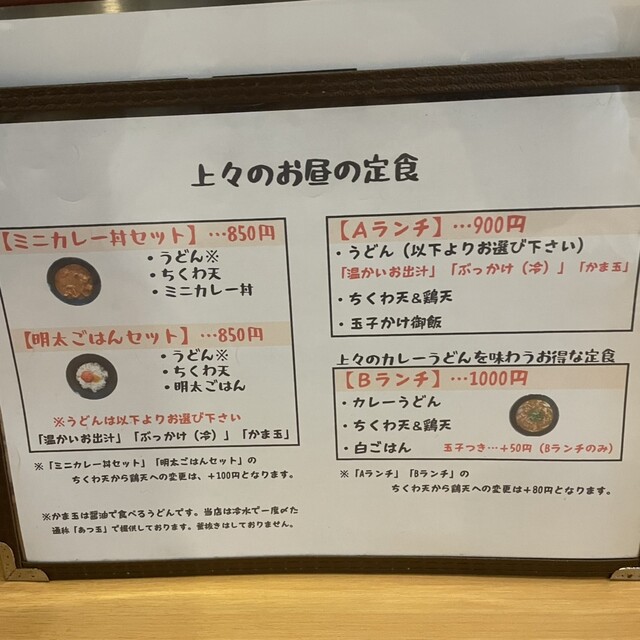 上々のお昼の定食
【ミニカレー丼セット】…850円
・うどん※
・ちくわ天
・ミニカレー丼
【明太ごはんセット】…850円
・うどん※
・ちくわ天
・明太ごはん
※うどんは以下よりお選び下さい
「温かいお出汁」「ぶっかけ（冷）」「かま玉」
※「ミニカレー丼セット」「明太ごはんセット」の
ちくわ天から鶏天への変更は、+100円となります。
※かま玉は醤油で食べるうどんです。当店は冷水で一度〆た
通称「あつ玉」で提供しております。釜抜きはしておりません。
【Aランチ】…900円
・うどん（以下よりお選び下さい）
「温かいお出汁」「ぶっかけ（冷）」「かま玉」
・ちくわ天&鶏天
・玉子かけ御飯
上々のカレーうどんを味わうお得な定食
【Bランチ】…1000円
・カレーうどん
・ちくわ天&鶏天
・白ごはん 玉子つき…+50円（Bランチのみ）
※「Aランチ」「Bランチ」の
ちくわ天から鶏天への変更は+80円となります。